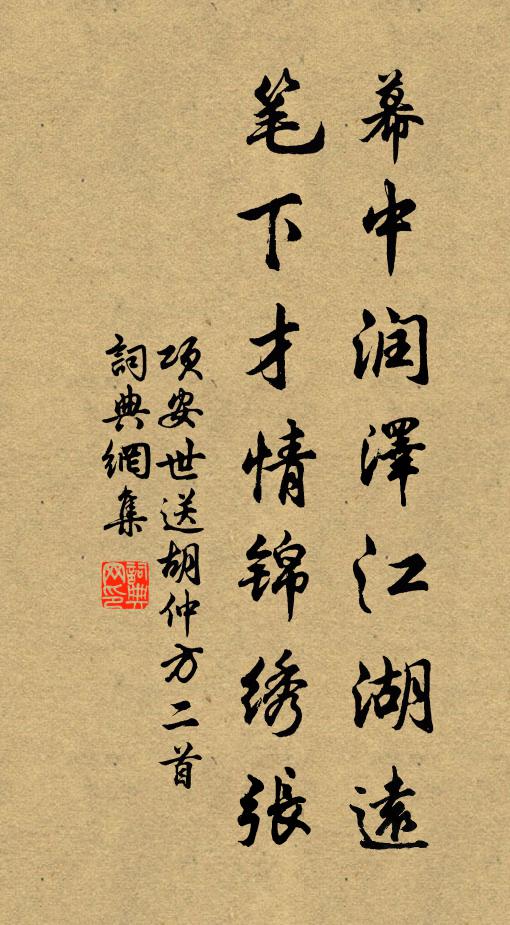 幕中润澤江湖遠
笔下才情錦绣張
项安世送胡仲方二首
詞典網集
詞典网印